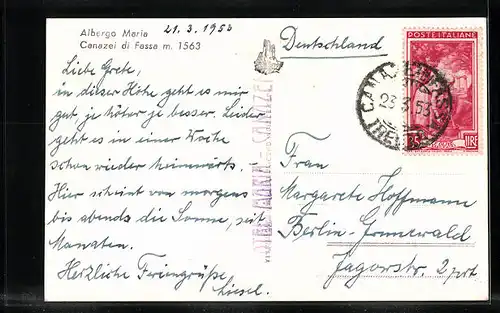 Albergo Maria
Canazei di Fassa m. 1563
21.3.1953
Deutschland
Liebe Grete,
in dieser Höhe geht es mir
gut, je höher je besser. Leider
geht es in einer Woche
schon wieder heimwärts.
Hier scheint von morgens
bis abends die Sonne, seit
Monaten.
Herzliche Feriengrüße,
Liesel.
POSTE ITALIANE
LIRE
23.3.53
Frau
Margarete Hoffmann
Berlin-Grunewald
Jagowstr. 2 prt